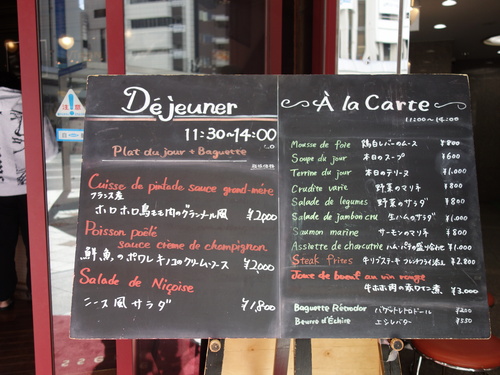 Déjeuner
11:30~14:00
L.O
Plat du jour + Baguette
Cuisse de pintade sauce grand-mère
フランス産
ホロホロ鳥もも肉のグランメール風 ¥2,000
Poisson poêlé
sauce crème de champignon
鮮魚のポワレキノコのクリームソース ¥2,000
Salade de Niçoise
ニース風サラダ ¥1,800
À la Carte
11:00~14:00
Mousse de foie 鶏白レバーのムース ¥800
Soupe du jour 本日のスープ ¥600
Terrine du jour 本日のテリーヌ ¥1,000
Crudite varie 野菜のマリネ ¥800
Salade de legumes 野菜のサラダ ¥1,000
Salade de jambon cru 生ハムのサラダ ¥1,000
Saumon marine サーモンのマリネ ¥800
Assiette de charcutrie ハム・パテの盛り合わせ ¥1,000
Steak frites 牛リブステーキ フレンチフライ添え ¥2,800
Joue de boeuf au vin rouge
牛ホホ肉の赤ワイン煮 ¥3,000
Baguette Rétrodor バゲットレトロドール ¥200
Beurre d'Échire エシレバター ¥350